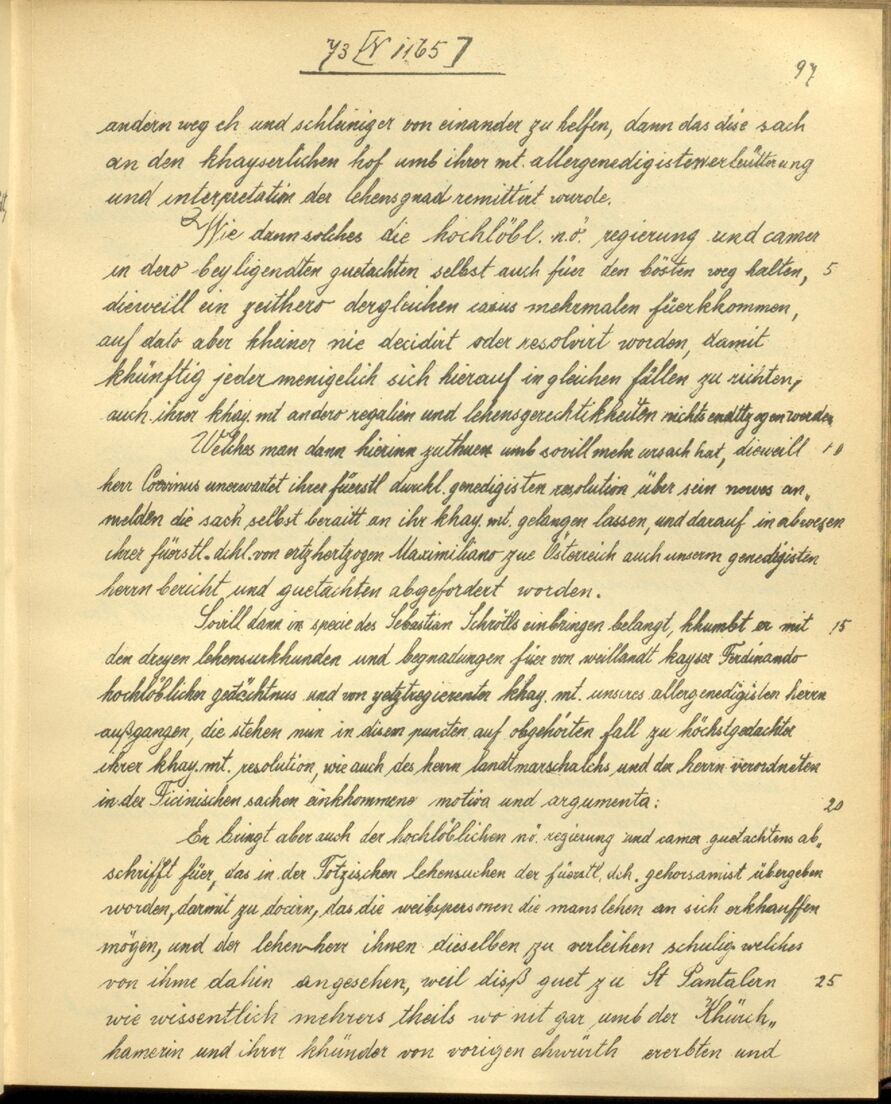 73 [N 1165]
97
andern weg eh und schleiniger von einander zu helfen, dann das dise sach
an den khayserlichen hof umb ihrer mt. allergenedigisten erleütterung
und interpretation der lehensgnad remittirt wurde.
2 Wie dann solches die hochlöbl. n.ö. regierung und camer
in dero beyligendten guetachten selbst auch für den bösten weg halten, 5
dieweill ein zeithero dergleichen casus mehrmalen füerkhommen,
auf dato aber kheiner nie decidirt oder resolvirt worden, damit
khünftig jedermenigelich sich hierauf in gleichen fällen zu richten,
auch ihrer khay. mt andero regalien und lehensgerechtikheiten nichts endtzogen werde.
Welches man dann hierinn zuthuen umb sovill mehr ursach hat, dieweill 10
herr Corvinus unerwartet ihrer füerstl durchl. genedigisten resolution über sein newes an„
melden die sach selbst beraitt an ihr khay. mt. gelangen lassen, und darauf in abwesen
ihrer füerstl. dchl. von ertzhertzogen Maximiliano zue Österreich auch unserm genedigisten
herrn bericht und guetachten abgefordert worden.
Sovill dann in specie des Sebastian Schrötls einbringen belangt, khumbt er mit 15
den dreyen lehensurkhunden und begnadungen füer von weillandt kayser Ferdinando
hochlöblicher gedächtnus und von yetztregierenter khay. mt. unsres allergenedigisten herrn
außgangen, die stehen nun in disem puncten auf obgehörten fall zu höchstgedachter
ihrer khay. mt. resolution, wie auch des herrn landtmarschalchs und der herrn verordneten
in der Ficinischen sachen einkhommene motiva und argumenta: 20
Er bringt aber auch der hochlöblichen n.ö. regierung und camer guetachtens ab„
schrifft füer, das in der Totzischen lehensuchen der füerstl. dch. gehorsamist übergeben
worden, darmit zu docirn, das die weibspersonen die manslehen an sich erkhauffen
mögen, und der lehenherr ihnen dieselben zu verleihen schulig welches
von ihme dahin angesehen, weil disß guet zu St Pantalern 25
wie wissentlich mehrers theils wo nit gar umb der Khürch„
hamerin und ihrer khünder von vorigen ehwürth ererbten und